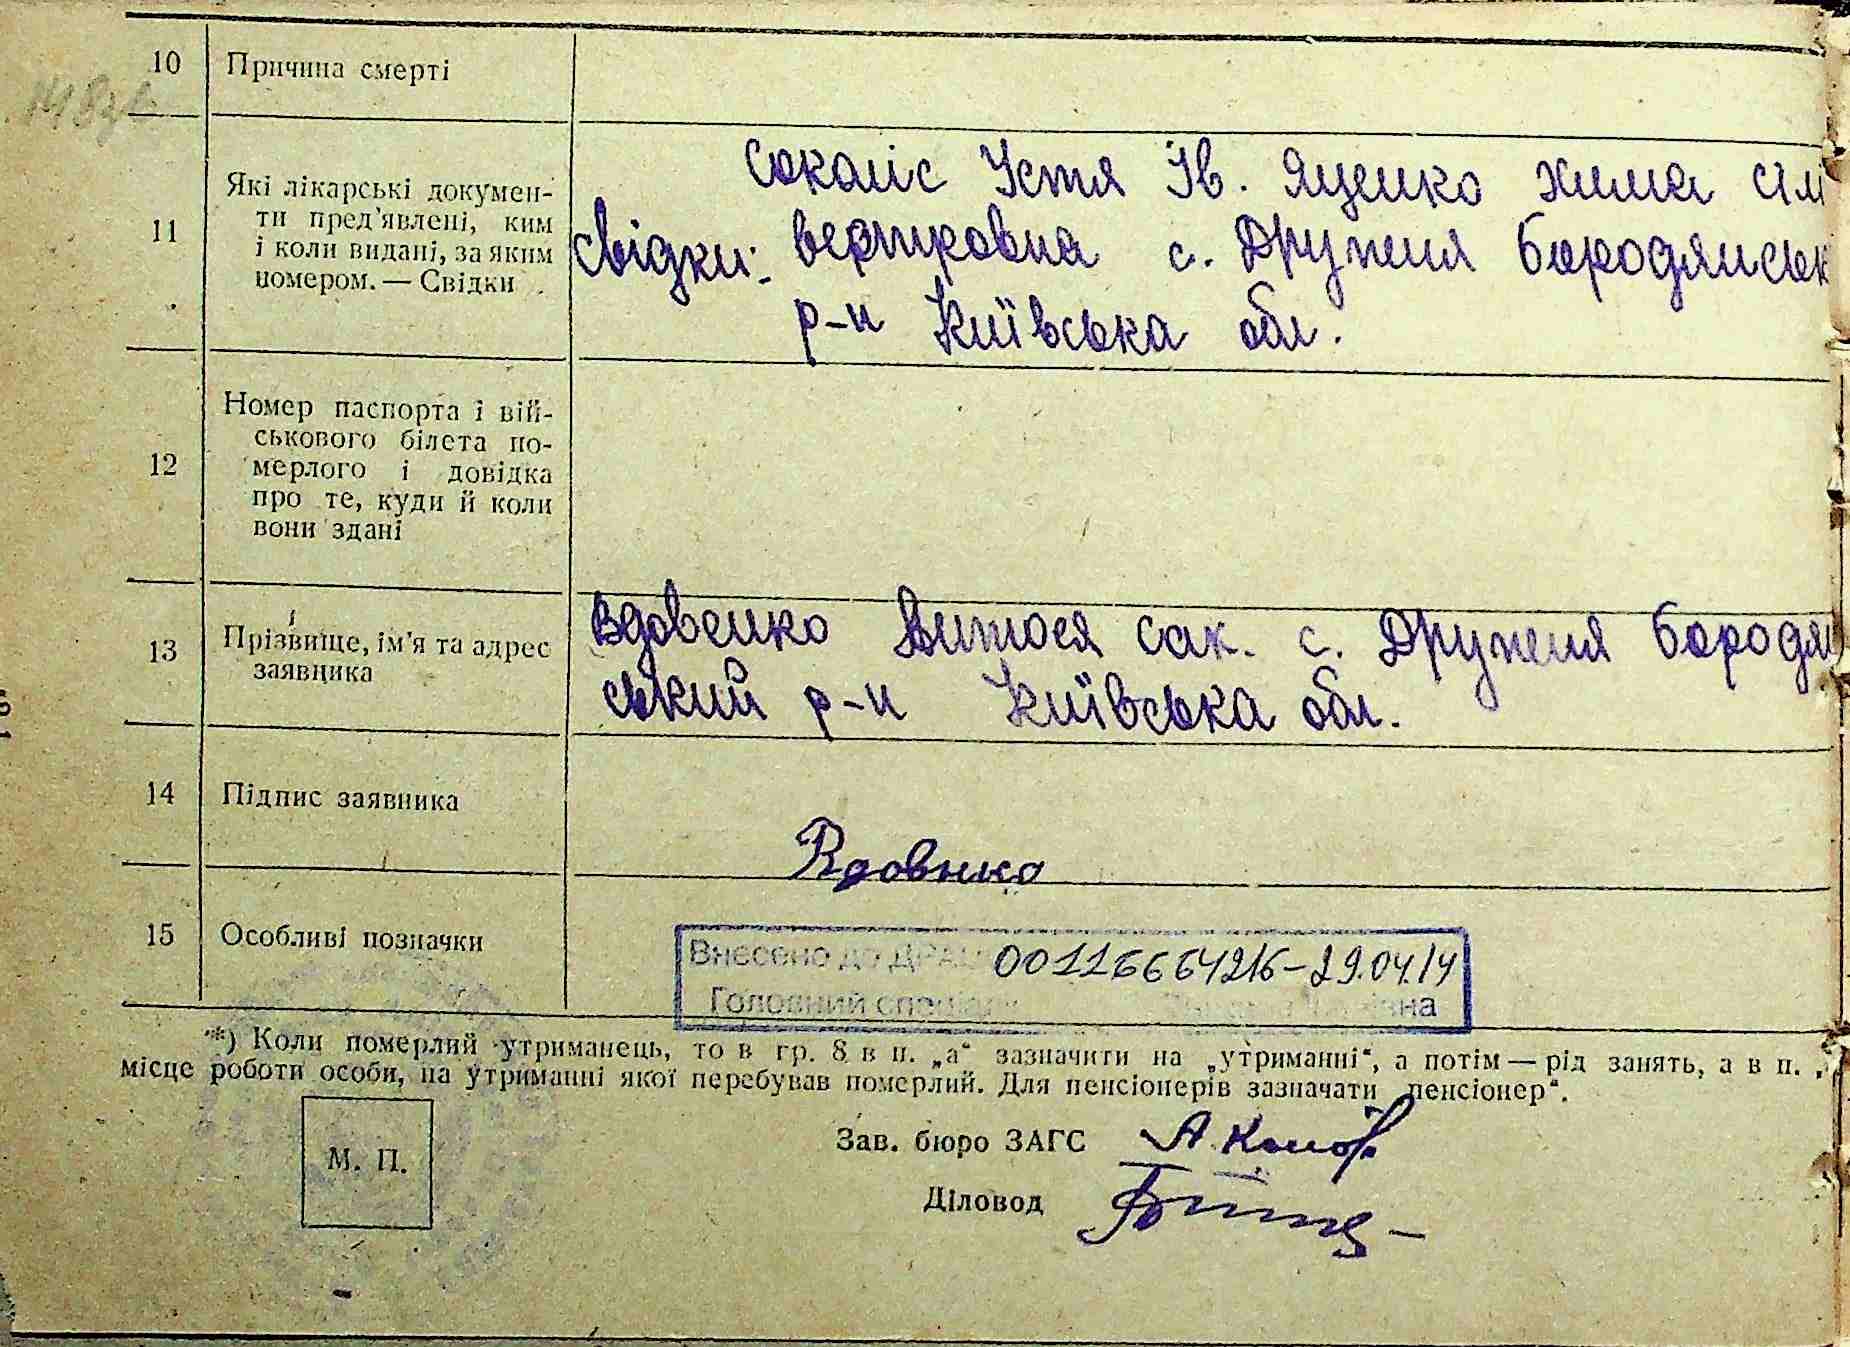 10 Причина смерті
11 Які лікарські докумен-
ти пред'явлені, ким
і коли видані, за яким
номером. — Свідки
Устя Ів. Яценко хима сім
свідки: с. Дружня бородянськ
р-н Київська обл.
12 Номер паспорта і вій-
ськового білета по-
мерлого і довідка
про те, куди й коли
вони здані
13 Прізвище, ім'я та адрес
заявника
Вдовенко сак. с. Дружня бородян
ський р-н Київська обл.
14 Підпис заявника
Вдовнко
15 Особливі позначки
Внесено до ДРАЦ 00116664216-29.04.14
Головний
*) Коли померлий утриманець, то в гр. 8 в п. „а“ зазначити на „утриманні“, а потім — рід занять, а в п. „
місце роботи особи, на утриманні якої перебував померлий. Для пенсіонерів зазначати „пенсіонер“.
М. П.
Зав. бюро ЗАГС
Діловод